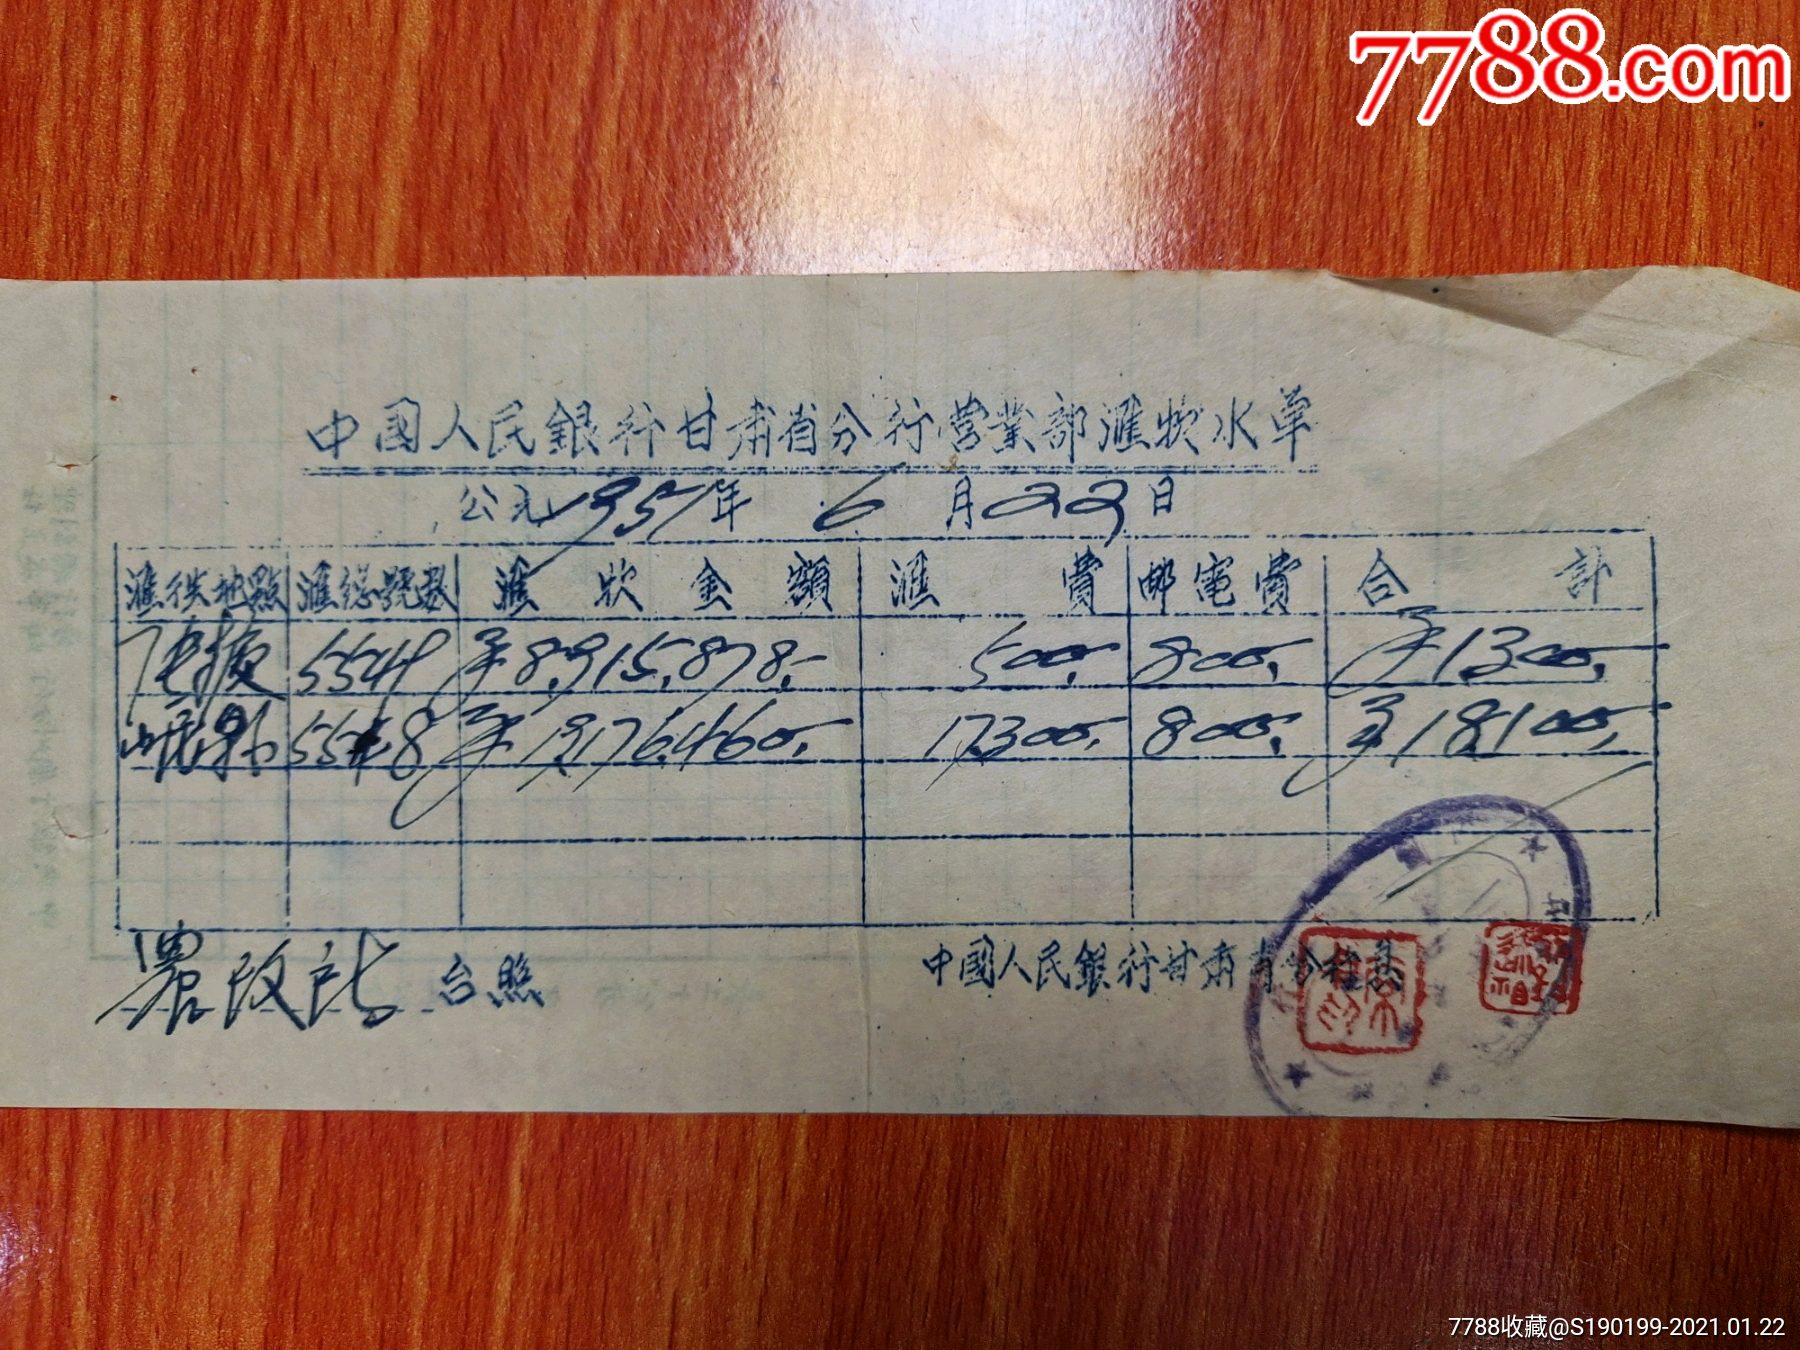 7788.com
中國人民銀行甘肅省分行营業部滙欵水单
公元1951年 6 月 22 日
滙往地點 滙總號数 滙欵金額 滙費 邮電費 合計
張掖 5544 ¥8,915,878.- 500. 800. ¥1,300.
岷县 5548 ¥19,176,460. 17,300. 800. ¥18,100.
農改所 台照 中國人民銀行甘肅省分行
7788收藏@S190199-2021.01.22